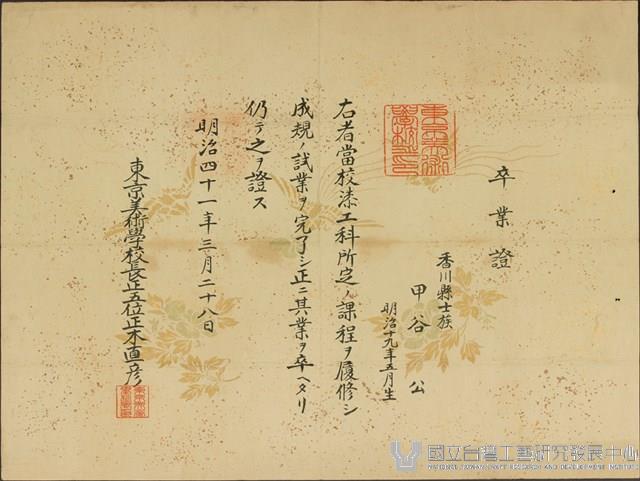 卒業證
香川縣士族
甲谷公
明治十九年五月生
右者當校漆工科所定ノ課程ヲ履修シ
成規ノ試業ヲ完了シ正ニ其業ヲ卒ヘタリ
仍テ之ヲ證ス
明治四十一年三月二十八日
東京美術學校長正五位正木直彦
國立台灣工藝研究發展中心
NATIONAL TAIWAN CRAFT RESEARCH AND DEVELOPMENT INSTITUTE